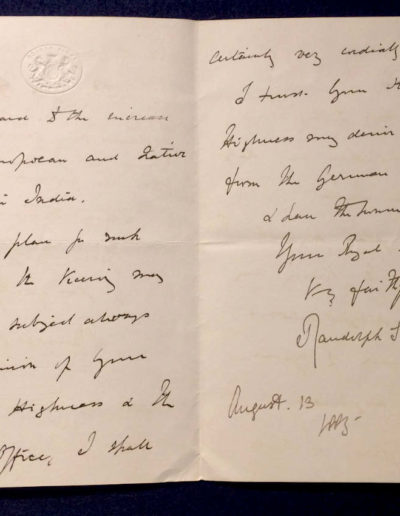 and to the increase
European and Native
India.
plan for such
the Viceroy may
subject always
of Your
Highness & the
Office, I shall
certainly very cordially
I trust Your
Highness may derive
from the German
& I have the honour
Your Royal
Randolph S
August. 13
1885